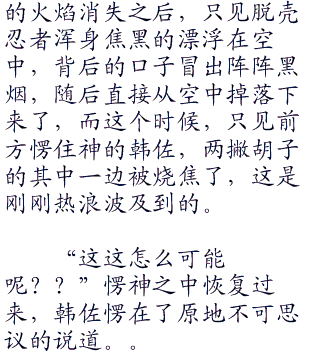 的火焰消失之后，只见脱壳
忍者浑身焦黑的漂浮在空
中，背后的口子冒出阵阵黑
烟，随后直接从空中掉落下
来了，而这个时候，只见前
方愣住神的韩佐，两撇胡子
的其中一边被烧焦了，这是
刚刚热浪波及到的。
“这这怎么可能
呢？？”愣神之中恢复过
来，韩佐愣在了原地不可思
议的说道。。